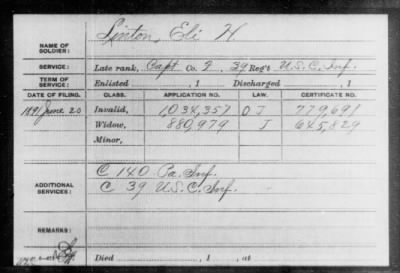 NAME OF SOLDIER: Linton, Eli H
SERVICE: Late rank, Capt Co. I, 39 Reg't U.S.C. Inf.
TERM OF SERVICE: Enlisted , 1 Discharged , 1
DATE OF FILING. CLASS. APPLICATION NO. LAW. CERTIFICATE NO.
1891 June 20 Invalid, 1,034,357 J 779,691
Widow, 880,979 J 645,829
Minor,
ADDITIONAL SERVICES: C 140 Pa. Inf.
C 39 U.S.C. Inf.
REMARKS:
Died , 1 , at